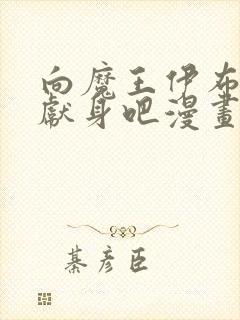 向魔王伊布
獻身吧漫畫
綦彦臣